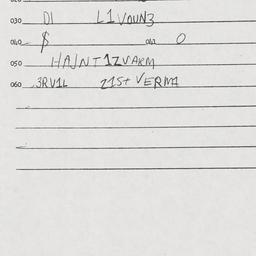 030 DI L1VOUN3
040 $ 042 0
050 HAJNT1ZVARM
060 3RV1L 21St VERMA